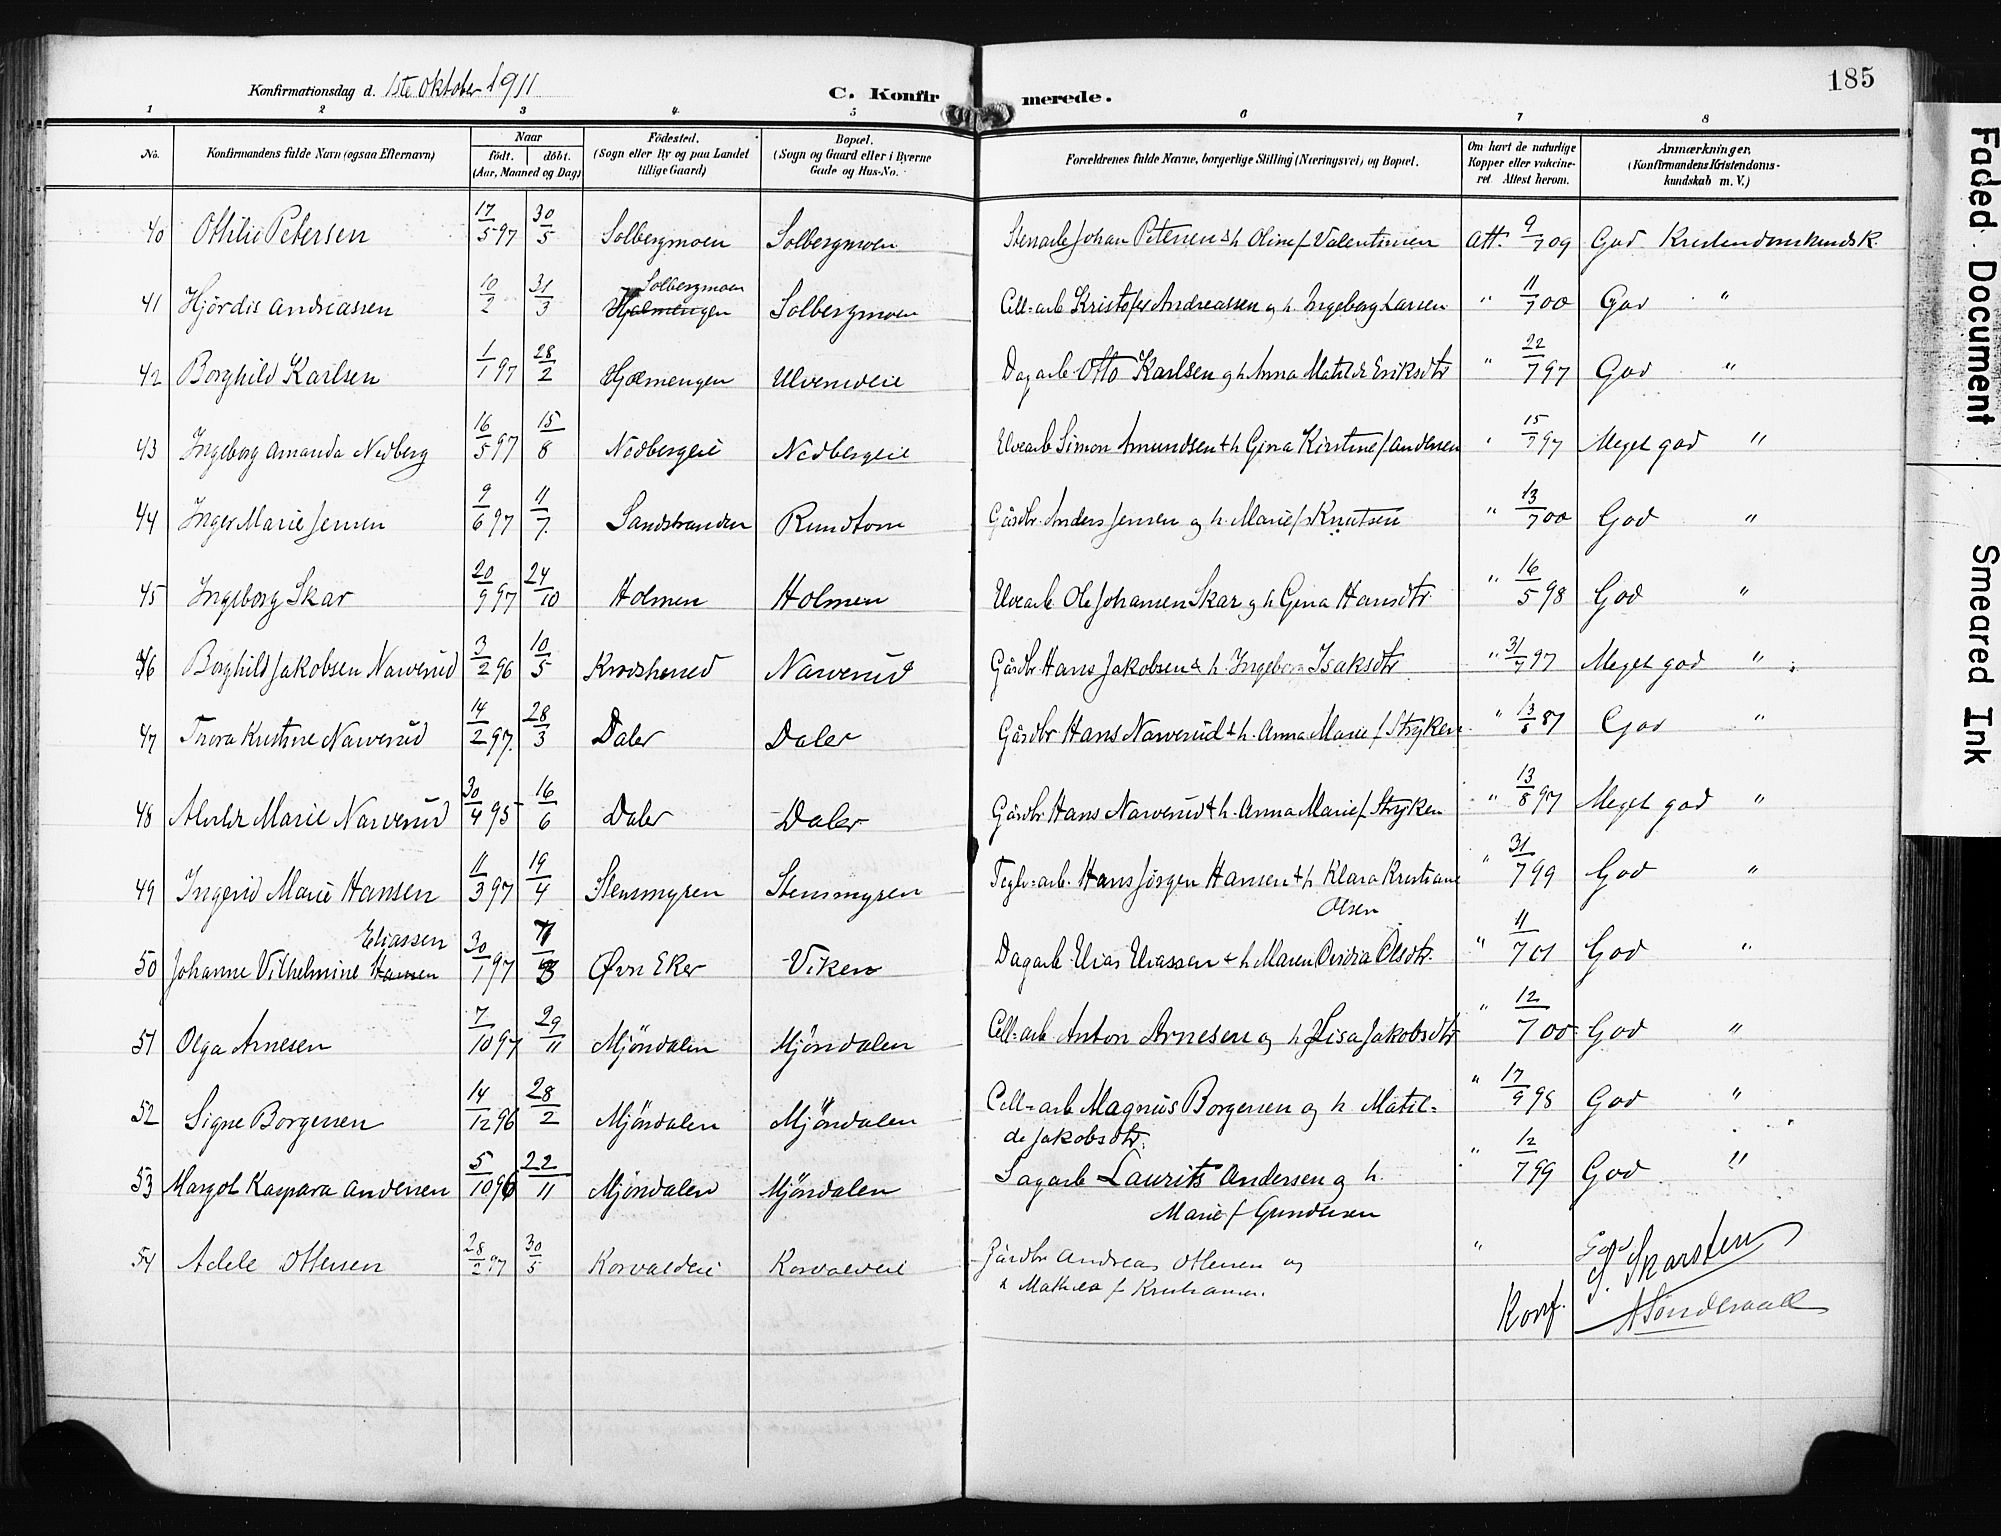 185
Konfirmationsdag d. 1ste Oktober 1911
C. Konfirmerede.
1 2 3 4 5 6 7 8
No. Konfirmandens fulde Navn (ogsaa Efternavn) Naar født. døbt. (Aar, Maaned og Dag) Fødested. (Sogn eller By og paa Landet tillige Gaard) Bopæl. (Sogn og Gaard eller i Byerne Gade og Hus-No. Forældrenes fulde Navne, borgerlige Stilling (Næringsvei) og Bopæl. Om havt de naturlige Kopper eller vakcineret Attest herom. Anmærkninger. (Konfirmandens Kristendomskundskab m. V.)
40 Othilie Petersen 17/5 97 30/5 Solbergmoen Solbergmoen Stenarb Johan Petersen & h. Oline f. Valentinsen Att. 9/7 09 God Kristendomskundsk.
41 Hjørdis Andreassen 10/2 31/3 Solbergmoen Hjelmengen Solbergmoen Cell=arb Kristofer Andreassen og h. Ingeborg Larsen " 11/7 00 God "
42 Borghild Karlsen 1/1 97 28/2 Hjælmengen Ulverudeie Dagarb Otto Karlsen og h Anna Matilde Eriksdtr " 22/7 97 God "
43 Ingeborg Amanda Nedberg 16/5 97 15/8 Nedbergeie Nedbergeie Elvearb Simon Amundsen & h Gina Kirstine f. Andersen " 15/7 97 Meget god "
44 Inger Marie Jensen 9/6 97 11/7 Sandstranden Rundtom Gårdbr. Anders Jensen og h. Marie f. Knutsen " 13/7 00 God "
45 Ingeborg Skar 20/9 97 24/10 Holmen Holmen Elvearb Ole Johansen Skar og h Gina Hansdtr " 16/5 98 God "
46 Borghild Jakobsen Narverud 3/2 96 10/5 Krødshered Narverud Gårdbr Hans Jakobsen & h. Ingeborg Isaksdtr " 31/7 97 Meget god "
47 Thora Kristine Narverud 14/2 97. 28/3 Daler Daler Gårdbr Hans Narverud & h. Anna Marie f Stryken " 13/8 87 God "
48 Marie Narverud 30/4 95 16/6 Daler Daler Gårdbr. Hans Narverud & h. Anna Marie f. Stryken " 13/8 97 Meget god "
49 Ingerid Marie Hansen 11/3 97 19/4 Stensmyren Stensmyren Teglv=arb. Hans Jørgen Hansen & h Klara Kristiane Olsen " 31/7 99 God "
50 Johanne Vilhelmine Hansen Eliassen 30/1 97 Øvre Eker Viken Dagarb Elias Eliassen & h Maren Olsdtr. " 11/7 01 God "
51 Olga Arnesen 7/10 97 29/11 Mjöndalen Mjöndalen Cell=arb. Anton Arnesen og h Lisa Jakobsdtr " 12/7 00 God "
52 Signe Borgersen 14/12 96 28/2 Mjöndalen Mjöndalen Cell=arb Magnus Borgersen og h Matilde Jakobsdtr. " 17/9 98 God "
53 Margot Kaspara Andersen 5/10 96 22/11 Mjöndalen Mjöndalen Sagarb Laurits Andersen og h. Marie f Gundersen " 12/7 99 God "
54 Adele Ottersen 28/2 97 30/5 Korvaldeie Korvaldeie Gårdbr Andreas Ottersen og h Mathilda f Kristiansen. " God
S. Skarsten
Konf.
Faded Document
Smeared Ink